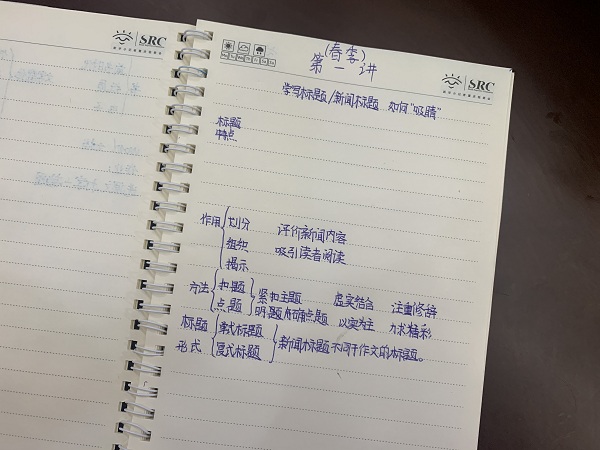 SRC
SRC
(春季)
第一讲
学写标题/新闻标题 如何"吸睛"
标题
特点
作用 划分 评价新闻内容
组织 吸引读者阅读
揭示
方法 扣题 紧扣主题 虚实结合 注重修辞
点题 明题 点题 以实为主 力求精彩
标题 单式标题
形式 复式标题 新闻标题不同于作文的标题。